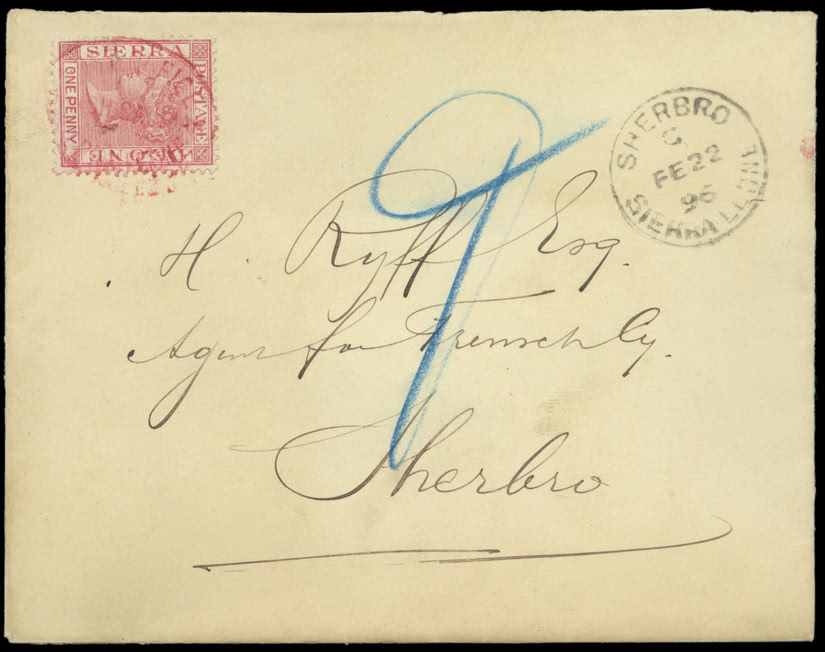 SIERRA
ONE PENNY
POSTAGE
LEONE
SHERBRO
FE 22
96
SIERRA LEONE
H. Ryff Esq.
Agent for French Cy.
Sherbro